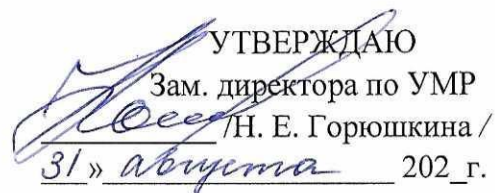 УТВЕРЖДАЮ
Зам. директора по УМР
/Н. Е. Горюшкина /
31 » августа 202_г.